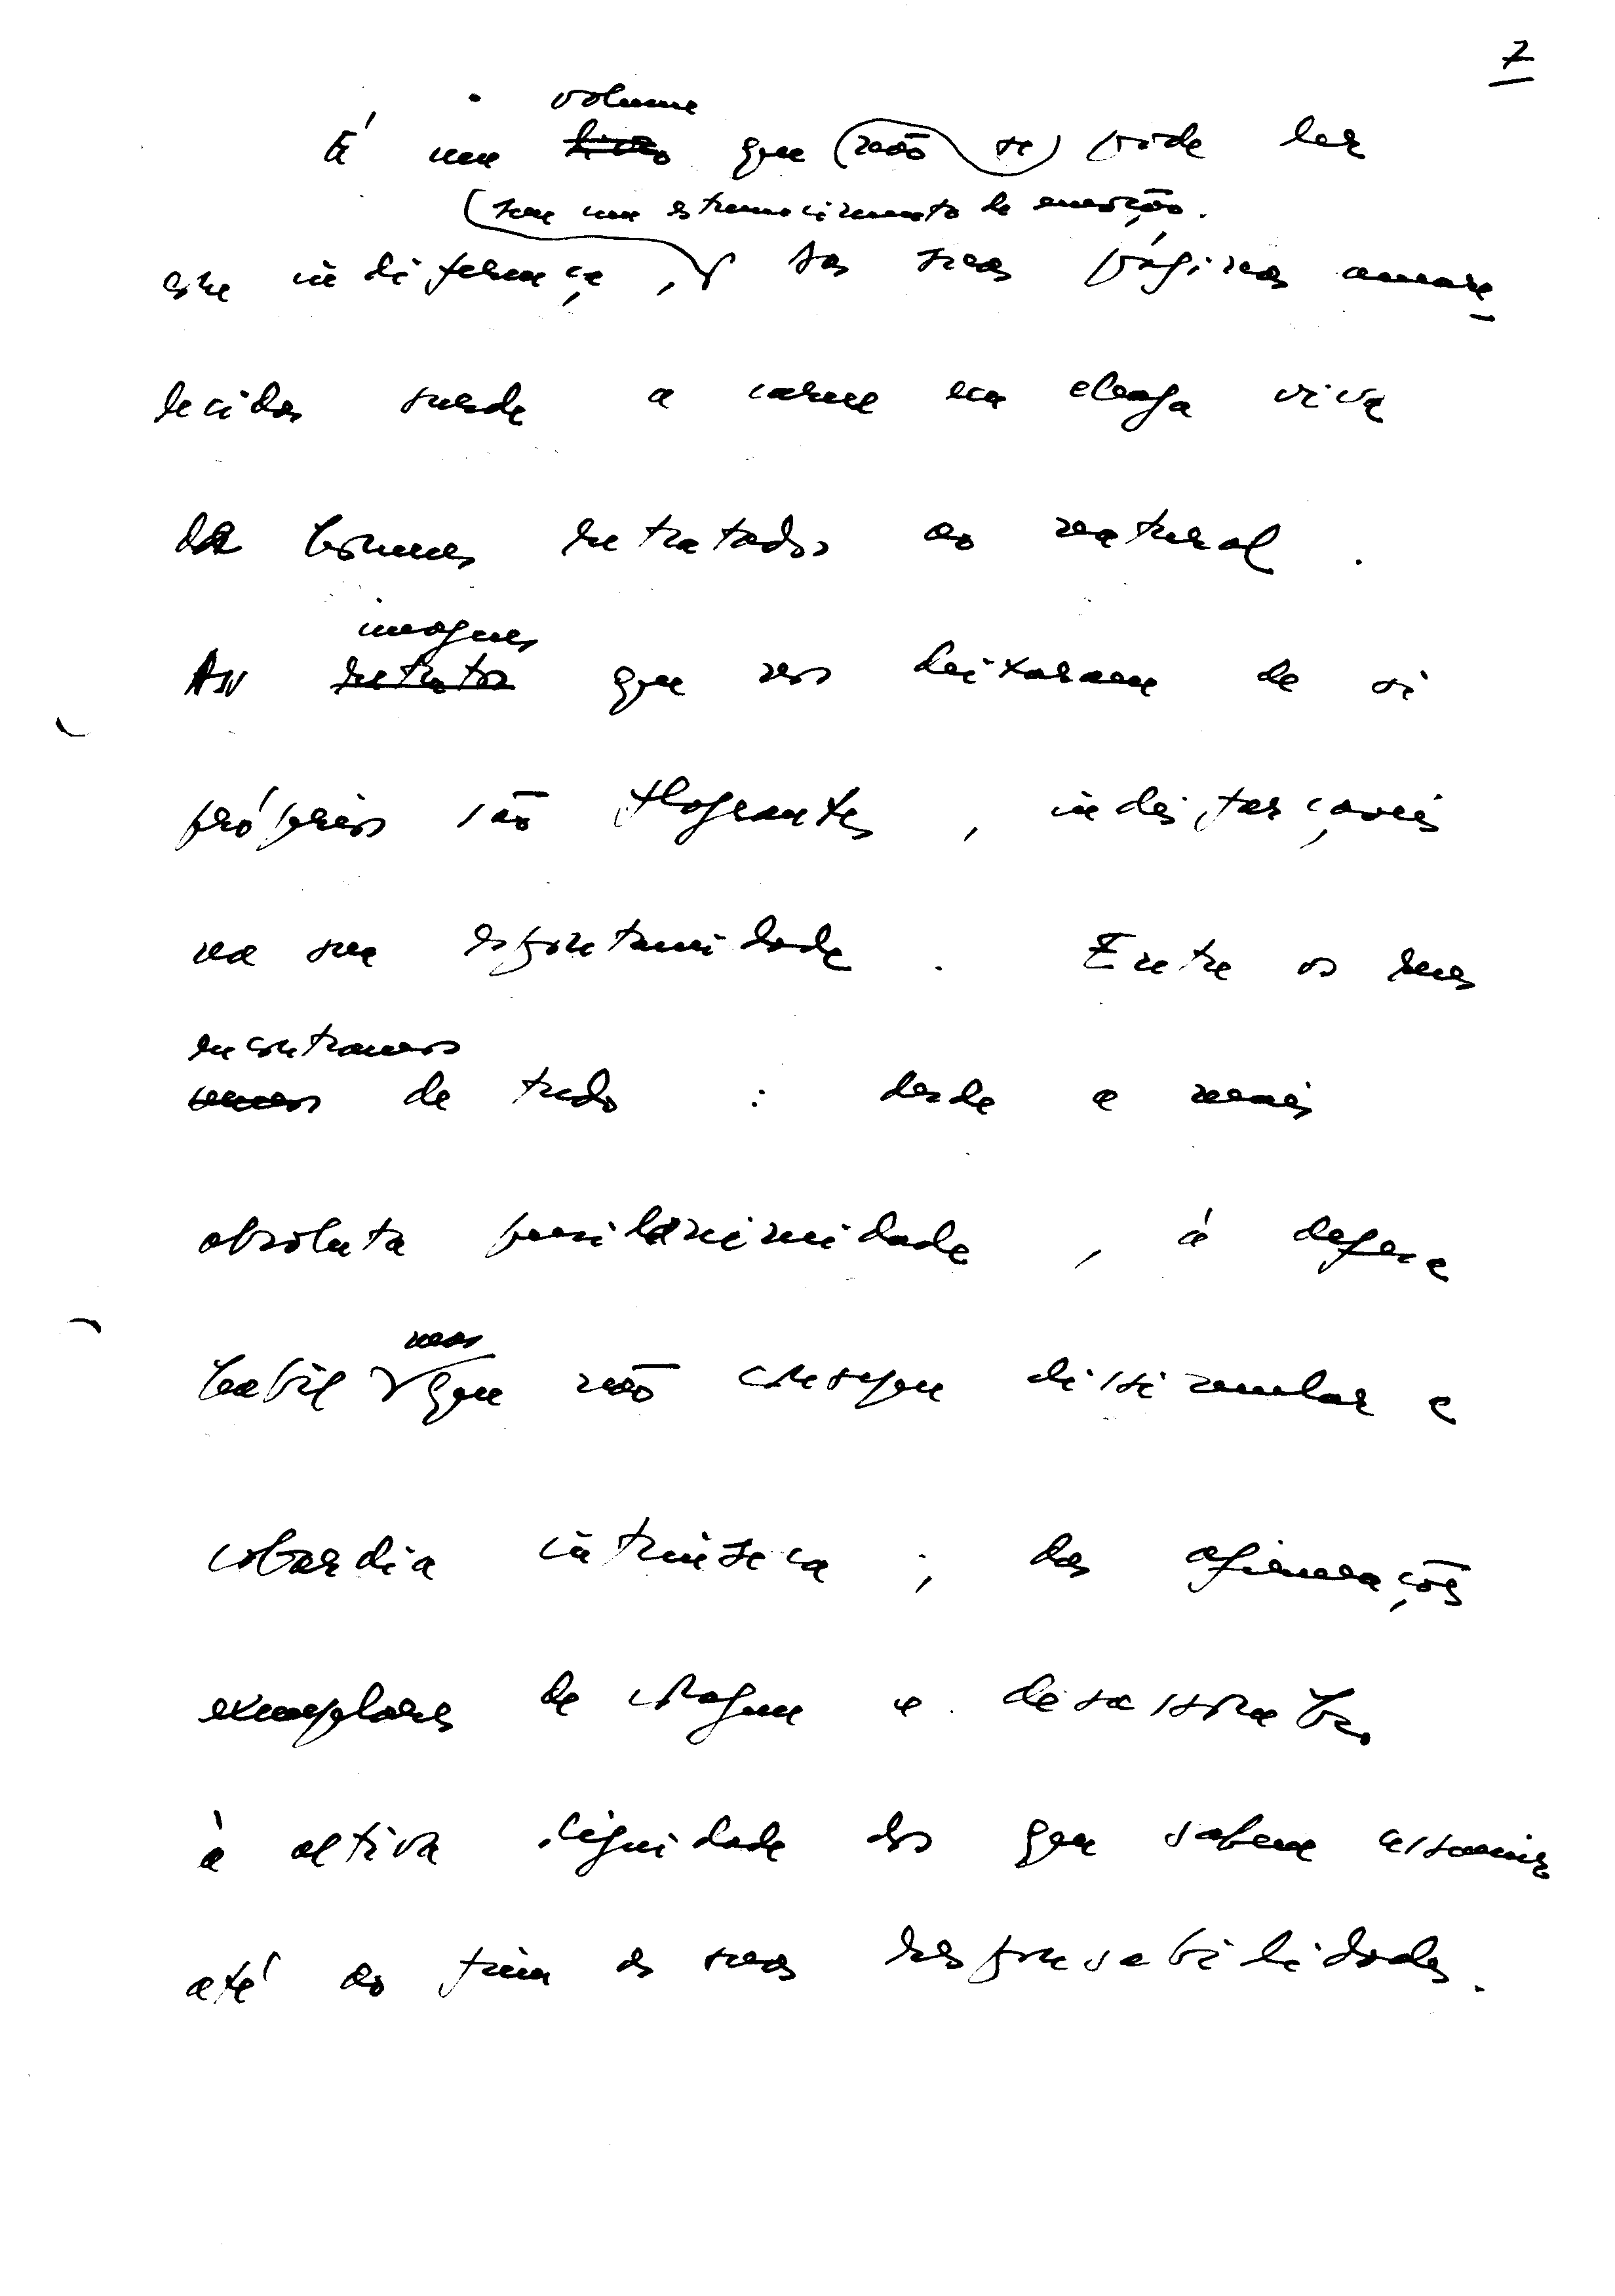 7
volume
É um livro que (não se) pode ler
(sem um estremecimento de emoção.
com indiferença, Das suas páginas amare
lecidas surde a carne em chaga viva
de homens retratados ao natural.
imagens
As retratos que nos deixaram de si
próprios são flagrantes, indisfarçáveis
na sua espontaneidade. Entre os seus
encontramos
temos de tudo : desde a mais
absoluta pusilanimidade, à defesa
mas
hábil que não consegue dissimular a
cobardia intrínseca ; das afirmações
exemplares de coragem e desassombro
à altiva dignidade dos que sabem assumir
até ao fim as suas responsabilidades.